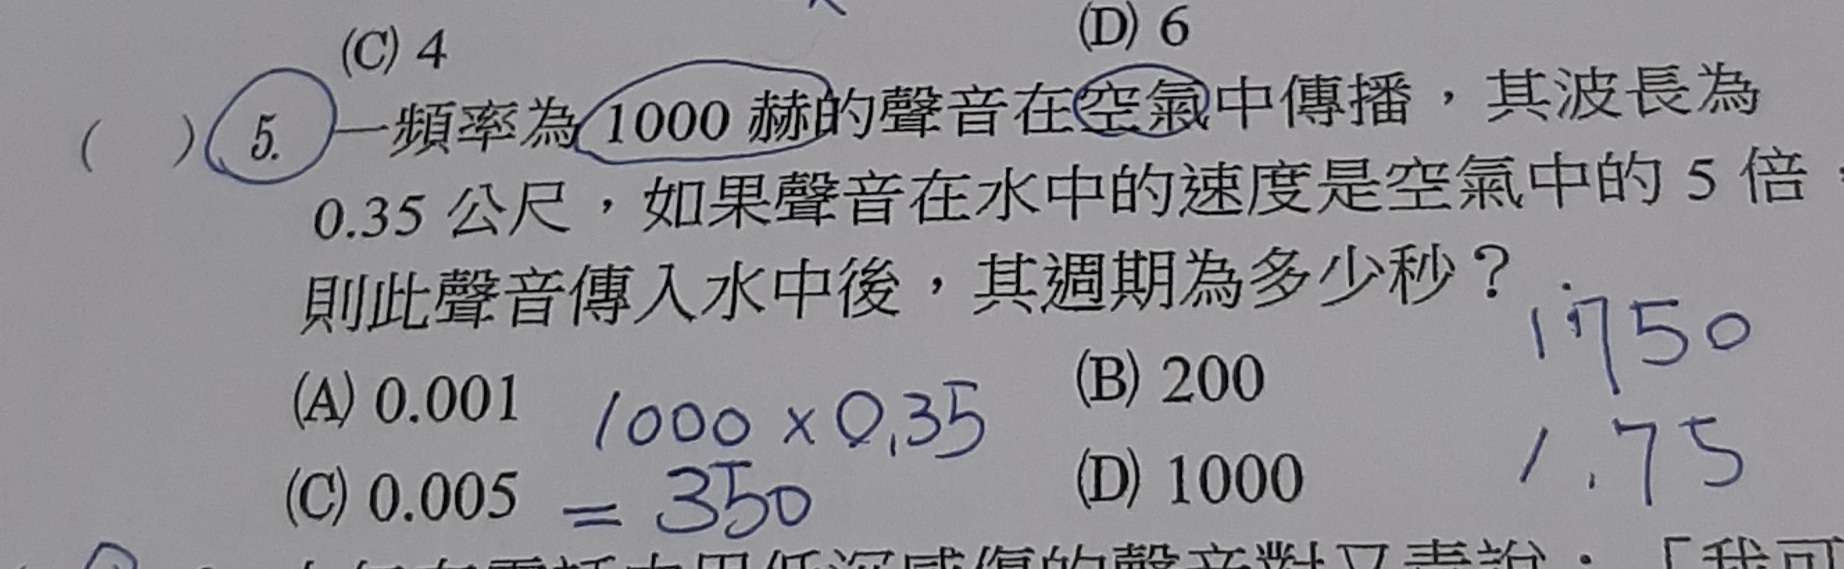 (C) 4 (D) 6
( ) 5. 一頻率為 1000 赫的聲音在空氣中傳播，其波長為
0.35 公尺，如果聲音在水中的速度是空氣中的 5 倍，
則此聲音傳入水中後，其週期為多少秒？
1750
(A) 0.001 (B) 200
1000 × 0.35
1.75
(C) 0.005 (D) 1000
= 350
低沉感傷的聲音對又青說：「我可